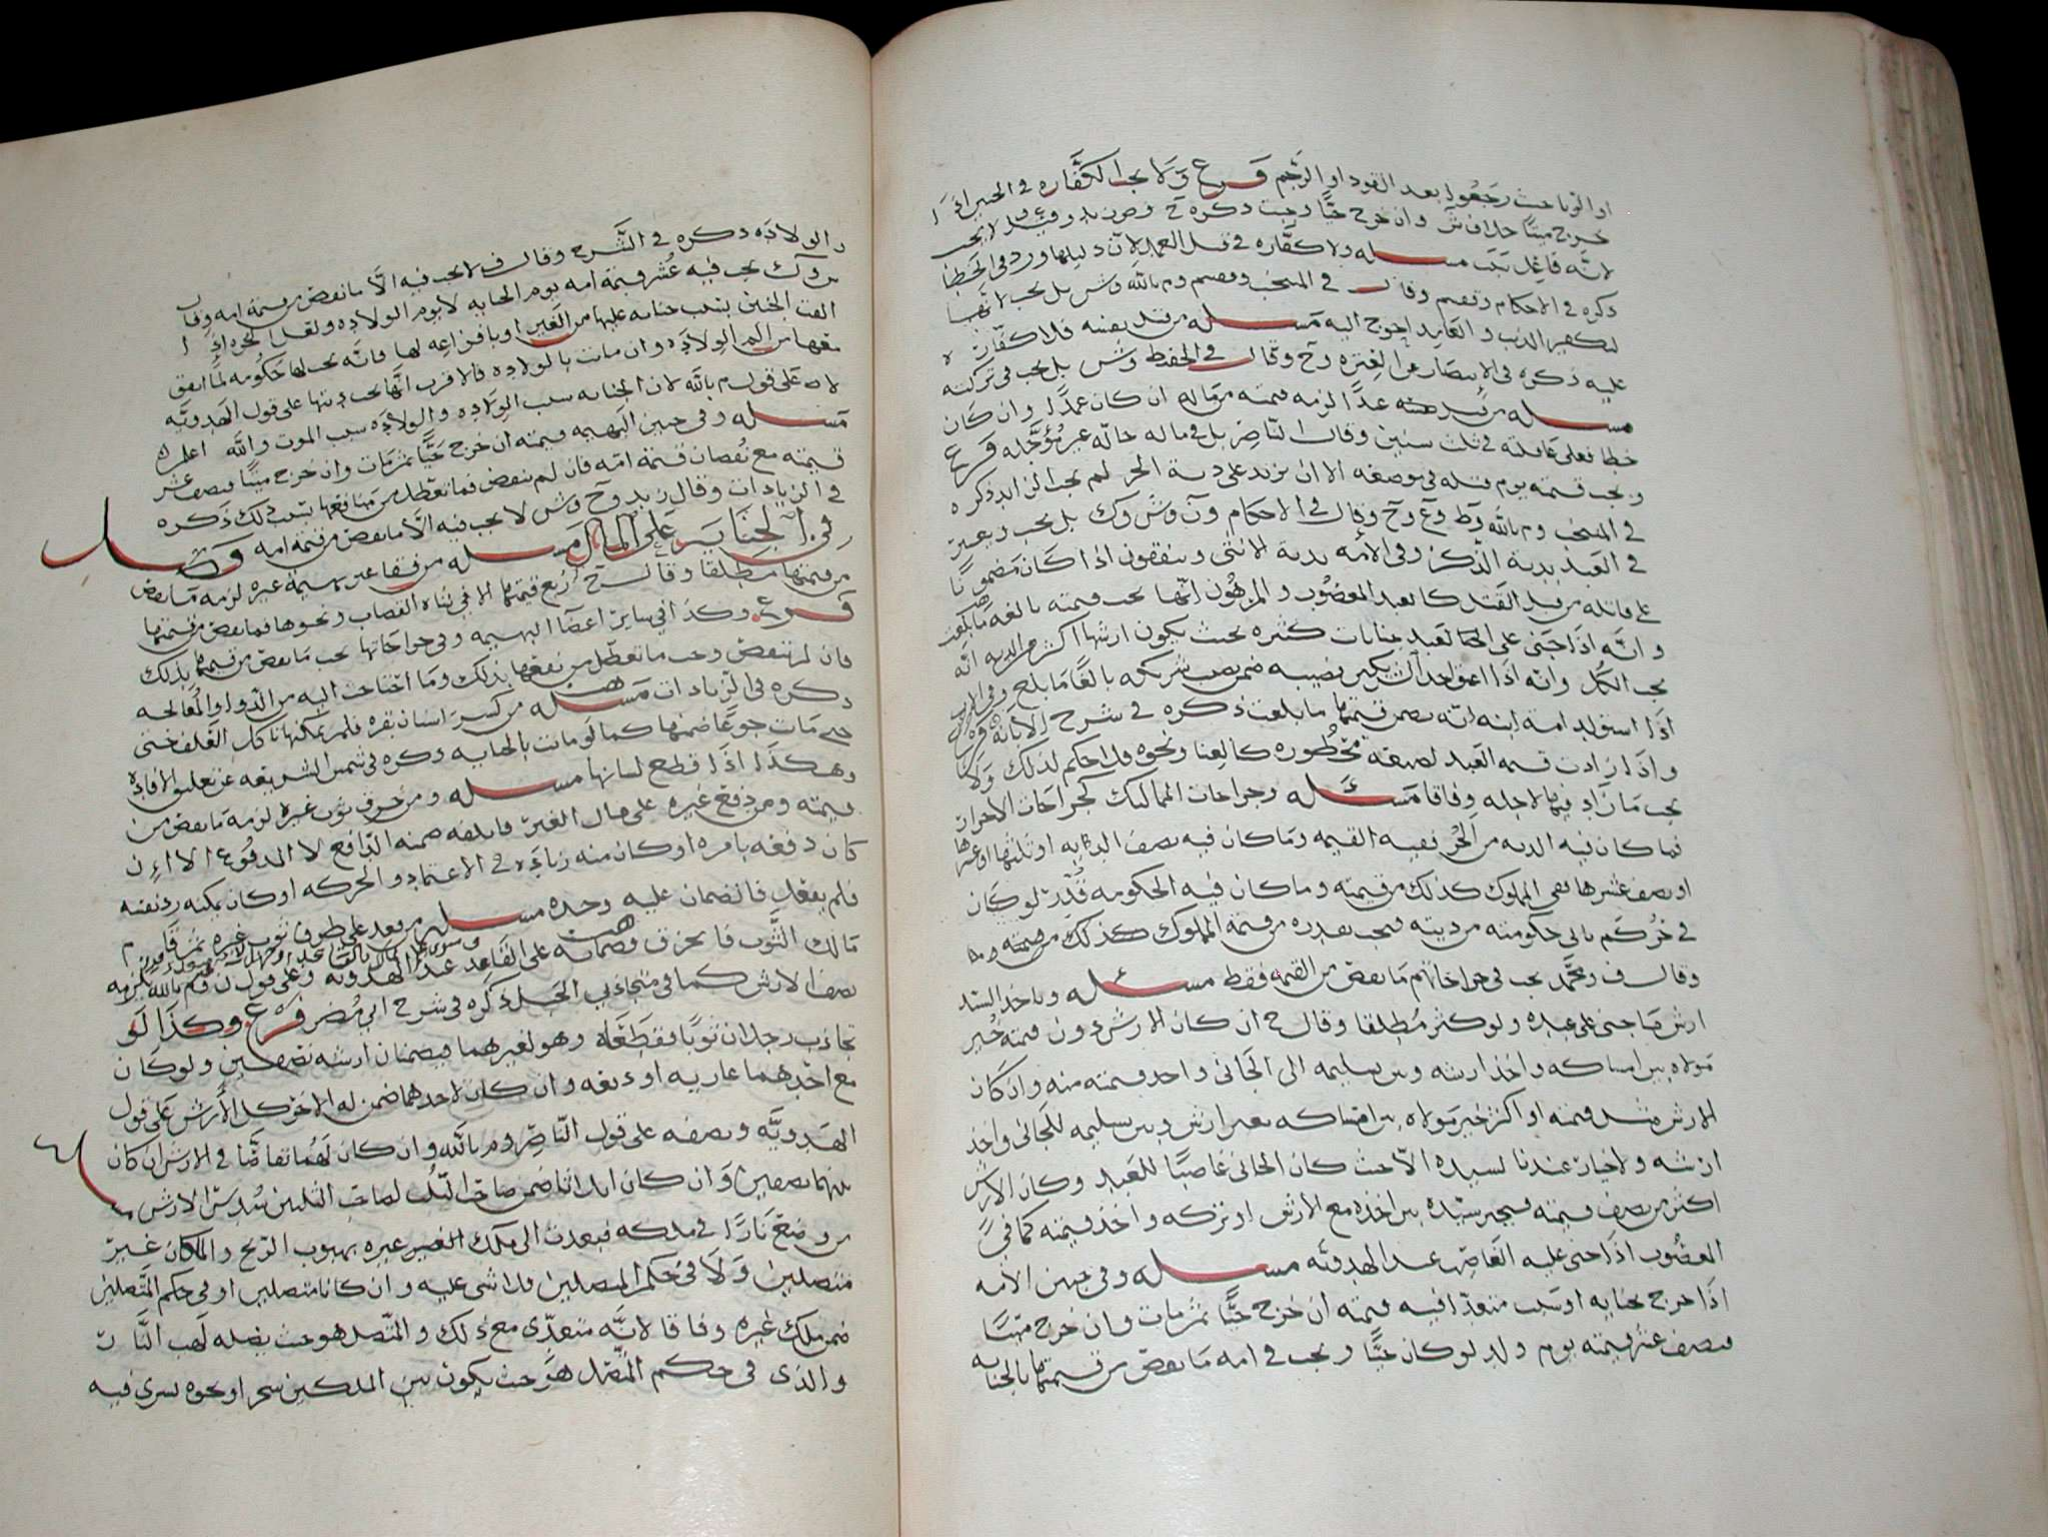 او الزنا حيث رجعوا بعد القود او الرجم فرع ولا يجب الكفاره في الجنين اذا
خرج ميتا خلاف ش وان خرج حيا وجبت ذكره ح لا يجب
لانه فاعل سبب مسئله ولا كفاره في قتل العمد لان دليلها ورد في الخطا
ذكره في الاحكام وقال في المنتخب وم بالله وش بل يجب لانها
لتكفير الذنب والعامد احوج اليه مسئله من قتل نفسه فلا كفارة
عليه ذكره في الانتصار عن العتره وح وقال في الحفيظ وش بل يجب في تركته
مسئله من قتل عبدا لزمه قيمته من ماله ان كان عمدا وان كان
خطا فعلى عاقلته في ثلث سنين وقال الناصر بل في ماله حالّه غير مؤجله فرع
ويجب قيمته يوم قتله في موضعه الا ان يزيد على دية الحر لم يجب الزايد ذكره
في المنتخب وم بالله وط وع وح وقال في الاحكام ون وش وك بل يجب ويعبر
في العبد بدية الذكر وفي الأمه بدية الانثى ويتفقون اذا كان مضمونا
على قاتله من قبل القتل كالعبد المغصوب والمرهون انها يجب قيمته بالغه ما بلغت
وانه اذا جنى على العبد جنايات كثيره بحيث يكون ارشها اكثر من الديه انه
يجب الكل وانه اذا اعتق احد الشريكين نصيبه ضمن نصيب شريكه بالغا ما بلغ وفي الاب
اذا استولد امة ابنه انه يضمن قيمتها ما بلغت ذكره في شرح الابانه فرع
واذا زادت قيمه العبد لصفة محظوره كالغنا ونحوه فلا حكم لذلك ولا
يجب ما زاد فيها لاجله وفاقا مسئله وجراحات المماليك كجراحات الاحرار
فما كان فيه الديه من الحر ففيه القيمه وما كان فيه نصف الديه او ثلثها او عشرها
او نصف عشرها ففي المملوك كذلك من قيمته وما كان فيه الحكومه قدّر لو كان
في حر كم ياتي حكومته من ديته فيجب بقدره من قيمة المملوك كذلك من قيمته
وقال ف ومحمد يجب في جراحاتهم ما نقص من القيمه فقط مسئله وياخذ السيد
ارش ما جنى على عبده ولو كثر مطلقا وقال ح ان كان الارش دون قيمته خير
مولاه بين امساكه واخذ ارشه وبين تسليمه الى الجاني واخذ قيمته منه وان كان
الارش مثل قيمته او اكثر خير مولاه بين امساكه بغير ارش وبين تسليمه للجاني واخذ
ارشه ولا خيار عندنا لسيده الا حيث كان الجاني غاصبا للعبد وكان الارش
اكثر من نصف قيمته فيخير سيده بين اخذه مع الارش او تركه واخذ قيمته كما في
المغصوب اذا جنى عليه الغاصب عند الهدويه مسئله وفي جنين الامه
اذا خرج بجنايه او سبب متعدا فيه قيمته ان خرج حيا ثم مات وان خرج ميتا
فنصف عشر قيمته يوم ولد لو كان حيا ويجب في امه ما نقص من قيمتها بالجنايه
والولاده ذكره في الشرح وقال ف لا يجب فيه الا ما نقص من قيمة امه وقال
ش وك يجب فيه عُشر قيمة امه يوم الجنايه لا يوم الولاده ولعل الحره اذا
القت الجنين بسبب جنايه عليها من الغير او بافزاعه لها فانه يجب لها حكومه لما اتفق
معها من الم الولاده وان ماتت بالولاده فالاقرب انها يجب ديتها على قول الهدويه
لا على قول م بالله لان الجنايه سبب الولاده والولاده سبب الموت والله اعلم
مسئله وفي جنين البهيمه قيمته ان خرج حيا ثم مات وان خرج ميتا فنصف عشر
قيمته مع نقصان قيمة امه فان لم تنقص فما تعطل من منافعها بسبب ذلك ذكره
في الزيادات وقال زيد وح وش لا يجب فيه الا ما نقص من قيمة امه فصل
في الجناية على المال مسئله من فقا عين بهيمة غيره لزمه ما نقص
من قيمتها مطلقا وقال ح ربع قيمتها الا في شاه القصاب ونحوها فما نقص من قيمتها
فرع وكذا في ساير اعضا البهيمه وفي جراحاتها يجب ما نقص من قيمتها بذلك
فان لم تنقص وجب ما تعطل من نفعها بذلك وما احتاجت اليه من الدوا والمعالجه
ذكره في الزيادات مسئله من كسر اسنان بقره فلم يمكنها تاكل العلف حتى
ماتت جوعا ضمنها كما لو ماتت بالجنايه ذكره في شمس الشريعه عن تعليق الافاده
وهكذا اذا قطع لسانها مسئله ومن خرق ثوب غيره لزمه ما نقص من
قيمته ومن دفع غيره على مال الغير فاتلفه ضمنه الدافع لا المدفوع الا ان
كان دفعه بامره او كان منه زياده في الاعتماد والحركه او كان يمكنه رد نفسه
فلم يفعل فالضمان عليه وحده مسئله من قعد على طرف ثوب غيره ثم قام
مالك الثوب فانخرق فضمانه على القاعد عند الهدويه وعلى قول ن وم بالله يلزمه
نصف الارش كما في متجاذبي الحبل ذكره في شرح ابي مضر فرع وكذا لو
تجاذب رجلان ثوبا فقطعاه وهو لغيرهما فيضمنان ارشه نصفين ولو كان
مع احدهما عاريه او وديعه وان كان لاحدهما ضمن له الاخر كل الأرش على قول
الهدويّه ونصفه على قول الناصر وم بالله وان كان لهما تقاصا في الارش ان كان
بينهما نصفين وان كان اثلاثا ضمن صاحب الثلث لصاحب الثلثين سدس الارش
من وضع نارا في ملكه فتعدت الى ملك الغير غيره بهبوب الريح والمكان غير
متصلين ولا في حكم المتصلين فلا شي عليه وان كانا متصلين او في حكم المتصلين
ضمن ملك غيره وفاقا لانه متعدي مع ذلك والمتصل هو حيث يصله لهب النار
والذي في حكم المتصل هو حيث يكون بين الملكين شجر او نحوه تسري فيه